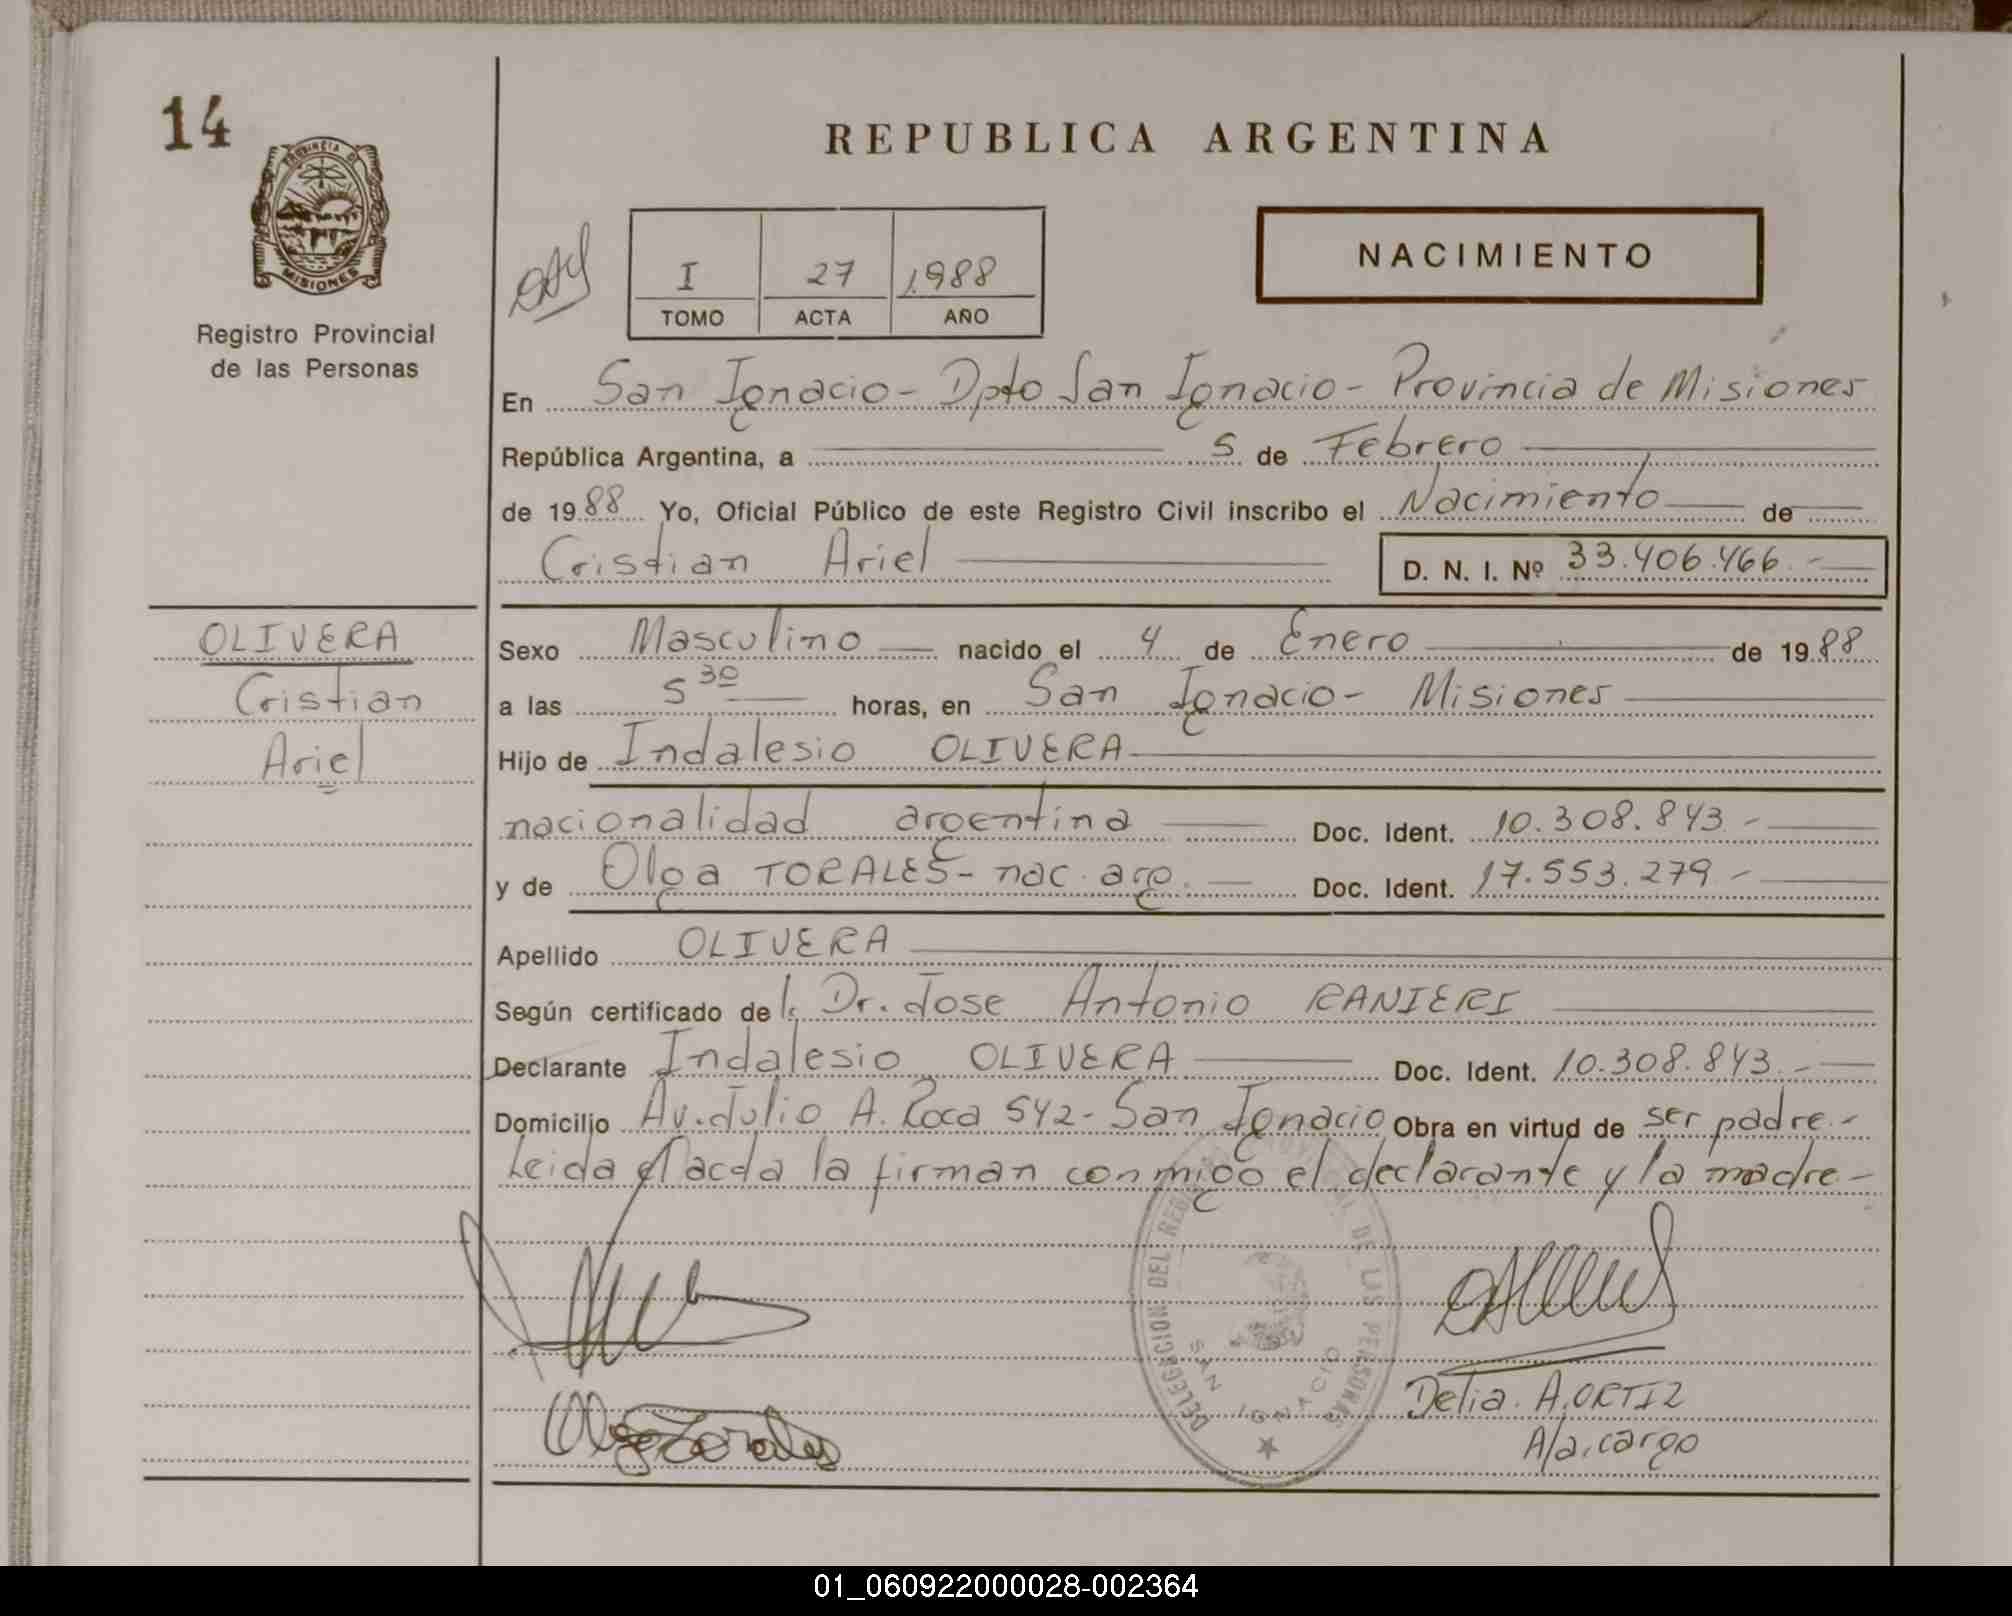 14
PROVINCIA DE
MISIONES
Registro Provincial
de las Personas
REPUBLICA ARGENTINA
I 27 1988
TOMO ACTA AÑO
NACIMIENTO
En San Ignacio - Dpto San Ignacio - Provincia de Misiones
República Argentina, a 5 de Febrero
de 1988 Yo, Oficial Público de este Registro Civil inscribo el Nacimiento de
Cristian Ariel D. N. I. Nº 33.406.466.-
OLIVERA
Cristian
Ariel
Sexo Masculino nacido el 4 de Enero de 1988
a las 5 30 horas, en San Ignacio - Misiones
Hijo de Indalesio OLIVERA
nacionalidad argentina Doc. Ident. 10.308.843.-
y de Olga TORALES - nac. arg. Doc. Ident. 17.553.279 -
Apellido OLIVERA
Según certificado del Dr. Jose Antonio RANIERI
Declarante Indalesio OLIVERA Doc. Ident. 10.308.843.-
Domicilio Av. Julio A. Roca 542 - San Ignacio Obra en virtud de ser padre.-
Leida el acta la firman conmigo el declarante y la madre -
DELEGACION DEL REGISTRO PROVINCIAL DE LAS PERSONAS
SAN IGNACIO
Olga Torales
Delia. A. ORTIZ
A/a.cargo
01_060922000028-002364